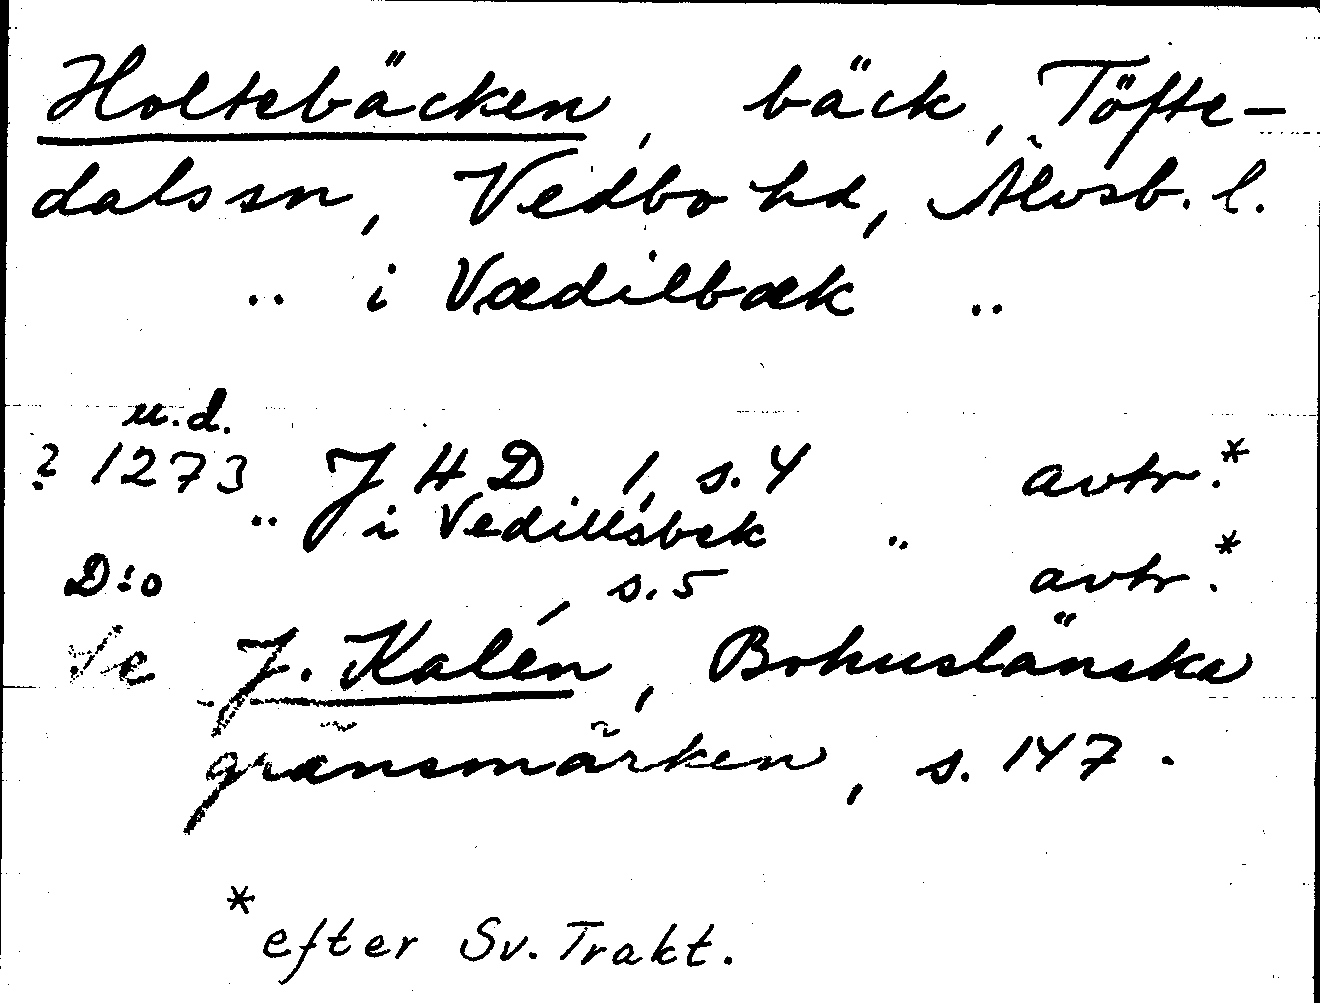 Holtebäcken, bäck, Töfte-
dals sn, Vedbo hd, Älvsb. l.
.. i Vædilbæk ..
u.d.
? 1273 JHD 1, s. 4 avtr.*
.. i Vedillsbek ..
D:o , s. 5 avtr.*
Se J. Kalén, Bohuslänska
gränsmärken, s. 147.
* efter Sv. Trakt.